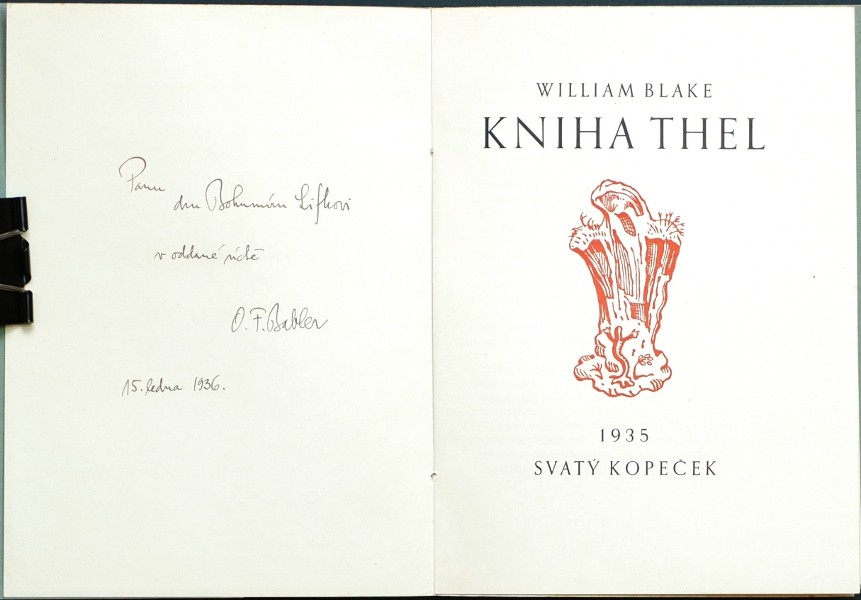 Panu
dru Bohumíru Lifkovi
v oddané úctě
O. F. Babler
15. ledna 1936.
WILLIAM BLAKE
KNIHA THEL
1935
SVATÝ KOPEČEK